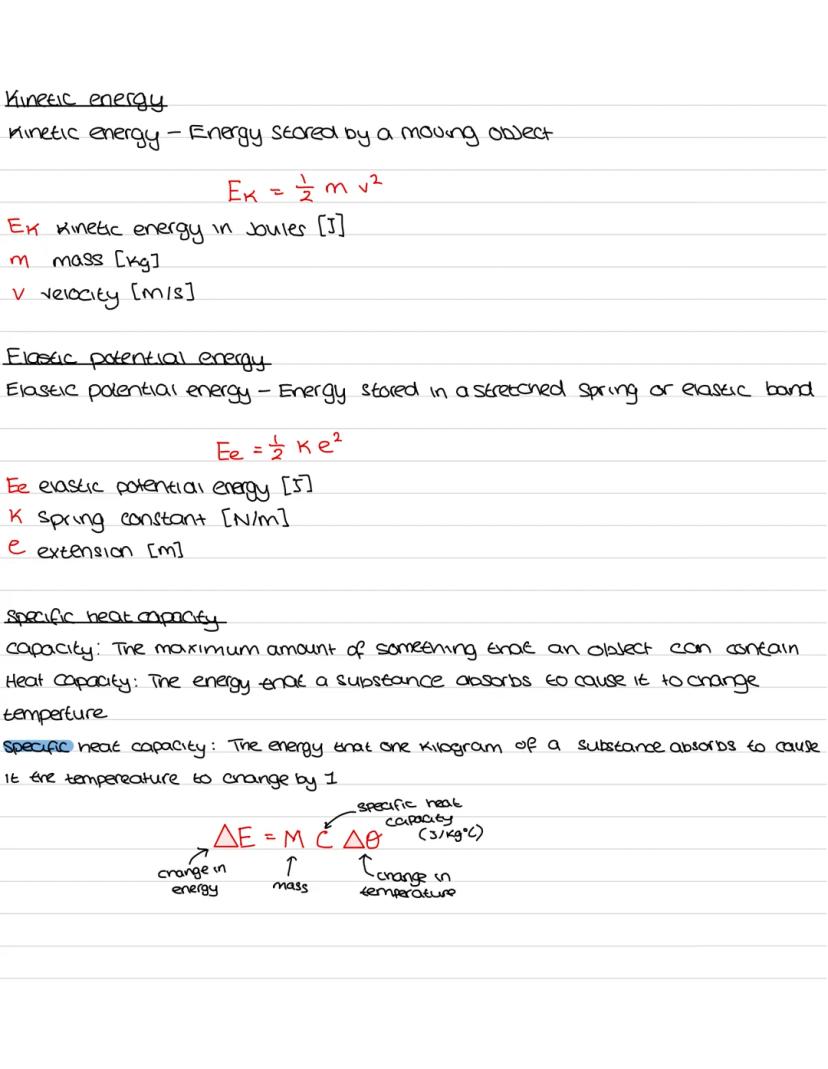 Kinetic energy
Kinetic energy – Energy stored by a moving object
Eк = ½ m v²
Eк kinetic energy in Joules [J]
m mass [kg]
v velocity [m/s]
Elastic potential energy
Elastic potential energy – Energy stored in a stretched spring or elastic band
Ee = ½ K e²
Ee elastic potential energy [J]
K spring constant [N/m]
e extension [m]
Specific heat capacity
capacity: The maximum amount of something that an object can contain
Heat capacity: The energy that a substance absorbs to cause it to change
temperture
Specific heat capacity: The energy that one kilogram of a substance absorbs to cause
it the tempereature to change by 1
specific heat
capacity
(J/kg°C)
ΔE = M C Δθ
change in
energy
mass
change in
temperature